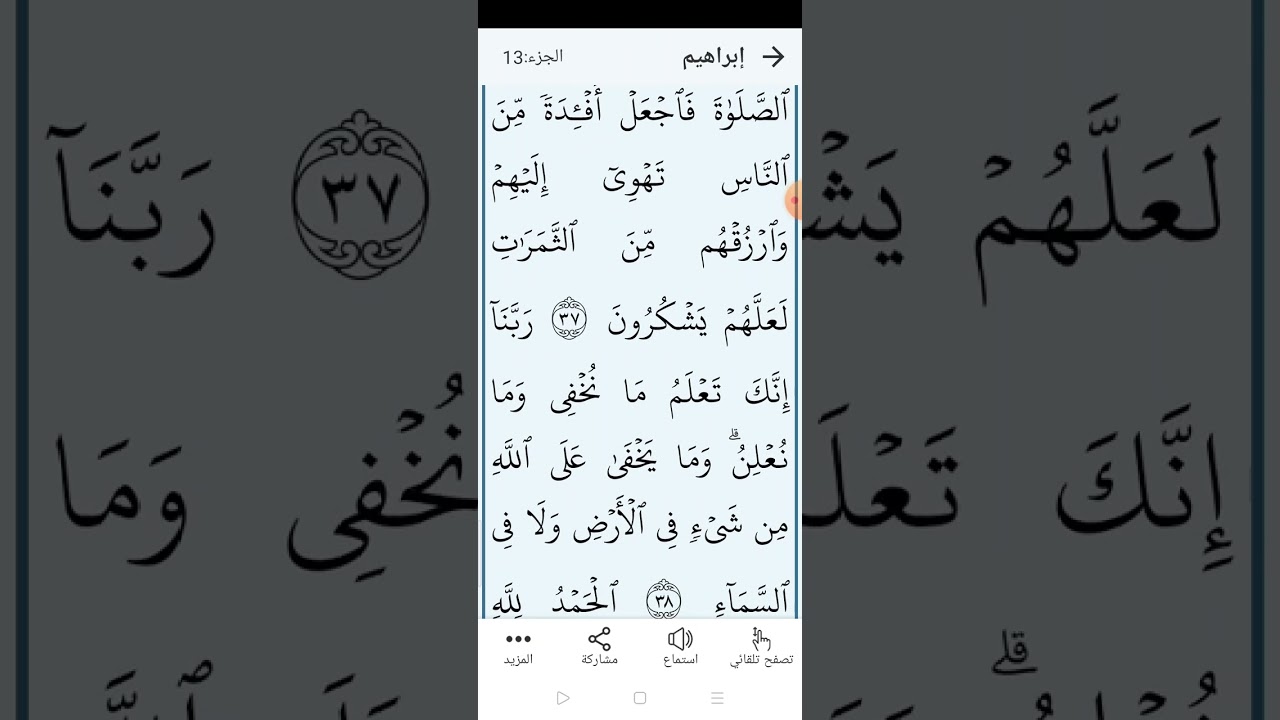 إبراهيم
الجزء:13
ٱلصَّلَوٰةَ فَٱجۡعَلۡ أَفۡـِٔدَةٗ مِّنَ
ٱلنَّاسِ تَهۡوِيٓ إِلَيۡهِمۡ
وَٱرۡزُقۡهُم مِّنَ ٱلثَّمَرَٰتِ
لَعَلَّهُمۡ يَشۡكُرُونَ ٣٧ رَبَّنَآ
إِنَّكَ تَعۡلَمُ مَا نُخۡفِي وَمَا
نُعۡلِنُۗ وَمَا يَخۡفَىٰ عَلَى ٱللَّهِ
مِن شَيۡءٖ فِي ٱلۡأَرۡضِ وَلَا فِي
ٱلسَّمَآءِ ٣٨ ٱلۡحَمۡدُ لِلَّهِ
تصفح تلقائي
استماع
مشاركة
المزيد
لَعَلَّهُمۡ
٣٧ رَبَّنَآ
إِنَّكَ
نُخۡفِي وَمَا